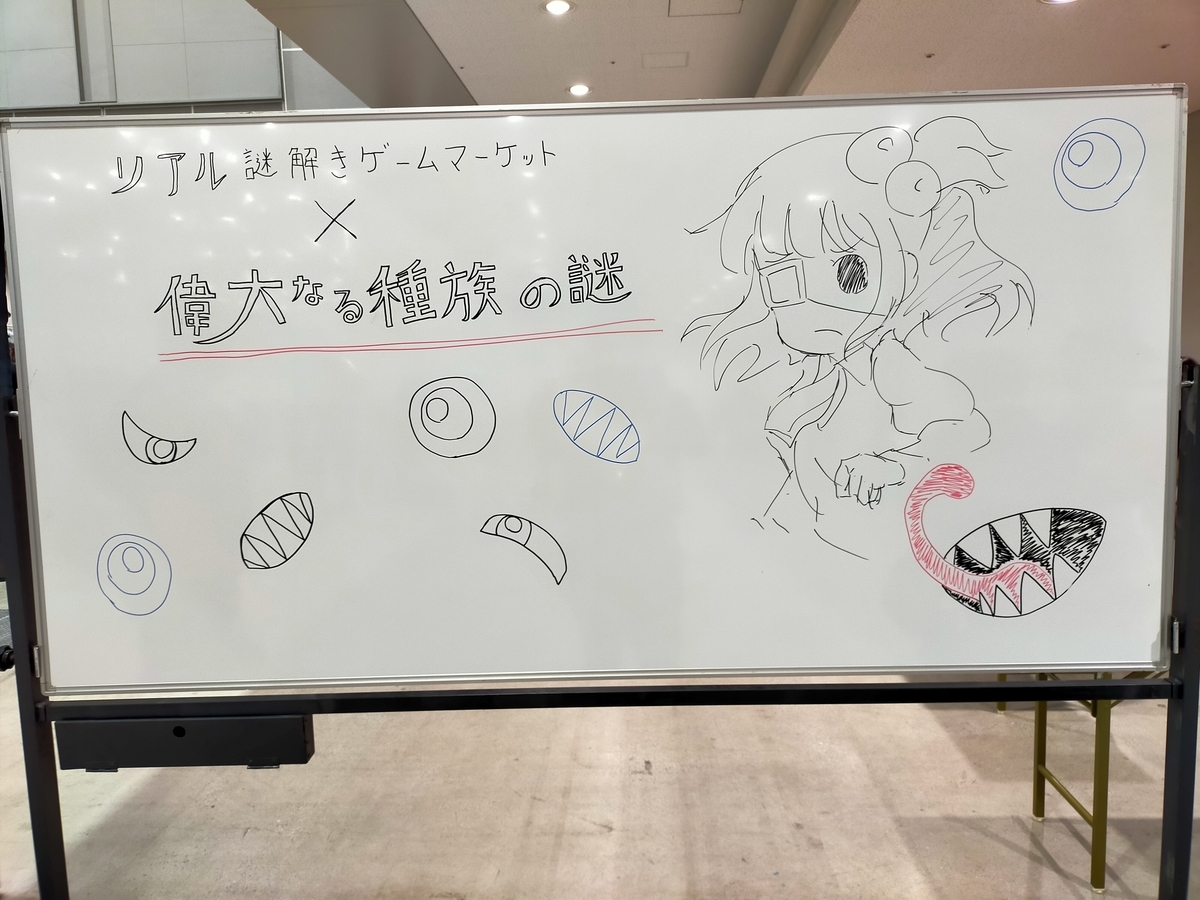 リアル謎解きゲームマーケット
×
偉大なる種族の謎